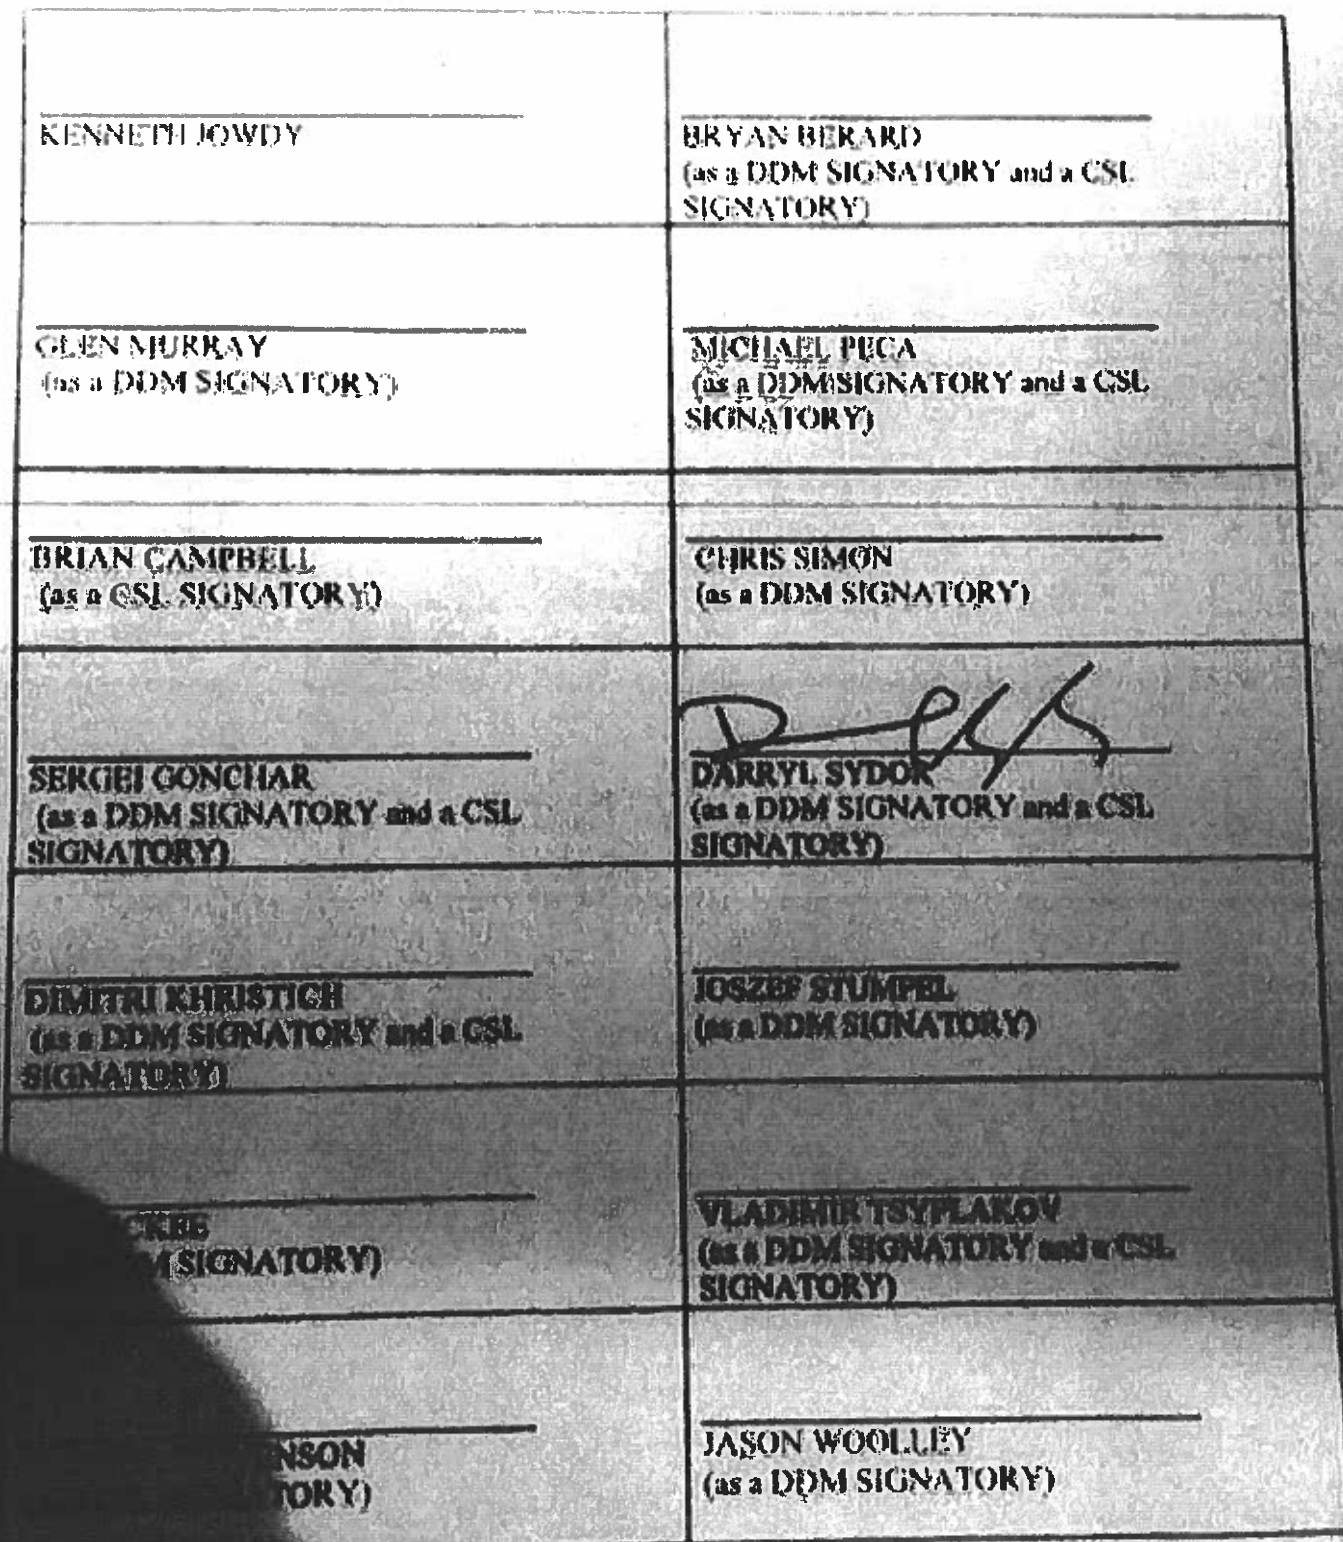 KENNETH JOWDY
BRYAN BERARD
(as a DDM SIGNATORY and a CSL
SIGNATORY)
GLEN MURRAY
(as a DDM SIGNATORY)
MICHAEL PECA
(as a DDM SIGNATORY and a CSL
SIGNATORY)
BRIAN CAMPBELL
(as a CSL SIGNATORY)
CHRIS SIMON
(as a DDM SIGNATORY)
SERGEI GONCHAR
(as a DDM SIGNATORY and a CSL
SIGNATORY)
DARRYL SYDOR
(as a DDM SIGNATORY and a CSL
SIGNATORY)
DIMITRI KHRISTICH
(as a DDM SIGNATORY and a CSL
SIGNATORY)
JOSZEF STUMPEL
(as a DDM SIGNATORY)
CKEE
M SIGNATORY)
VLADIMIR TSYPLAKOV
(as a DDM SIGNATORY and a CSL
SIGNATORY)
NSON
TORY)
JASON WOOLLEY
(as a DDM SIGNATORY)